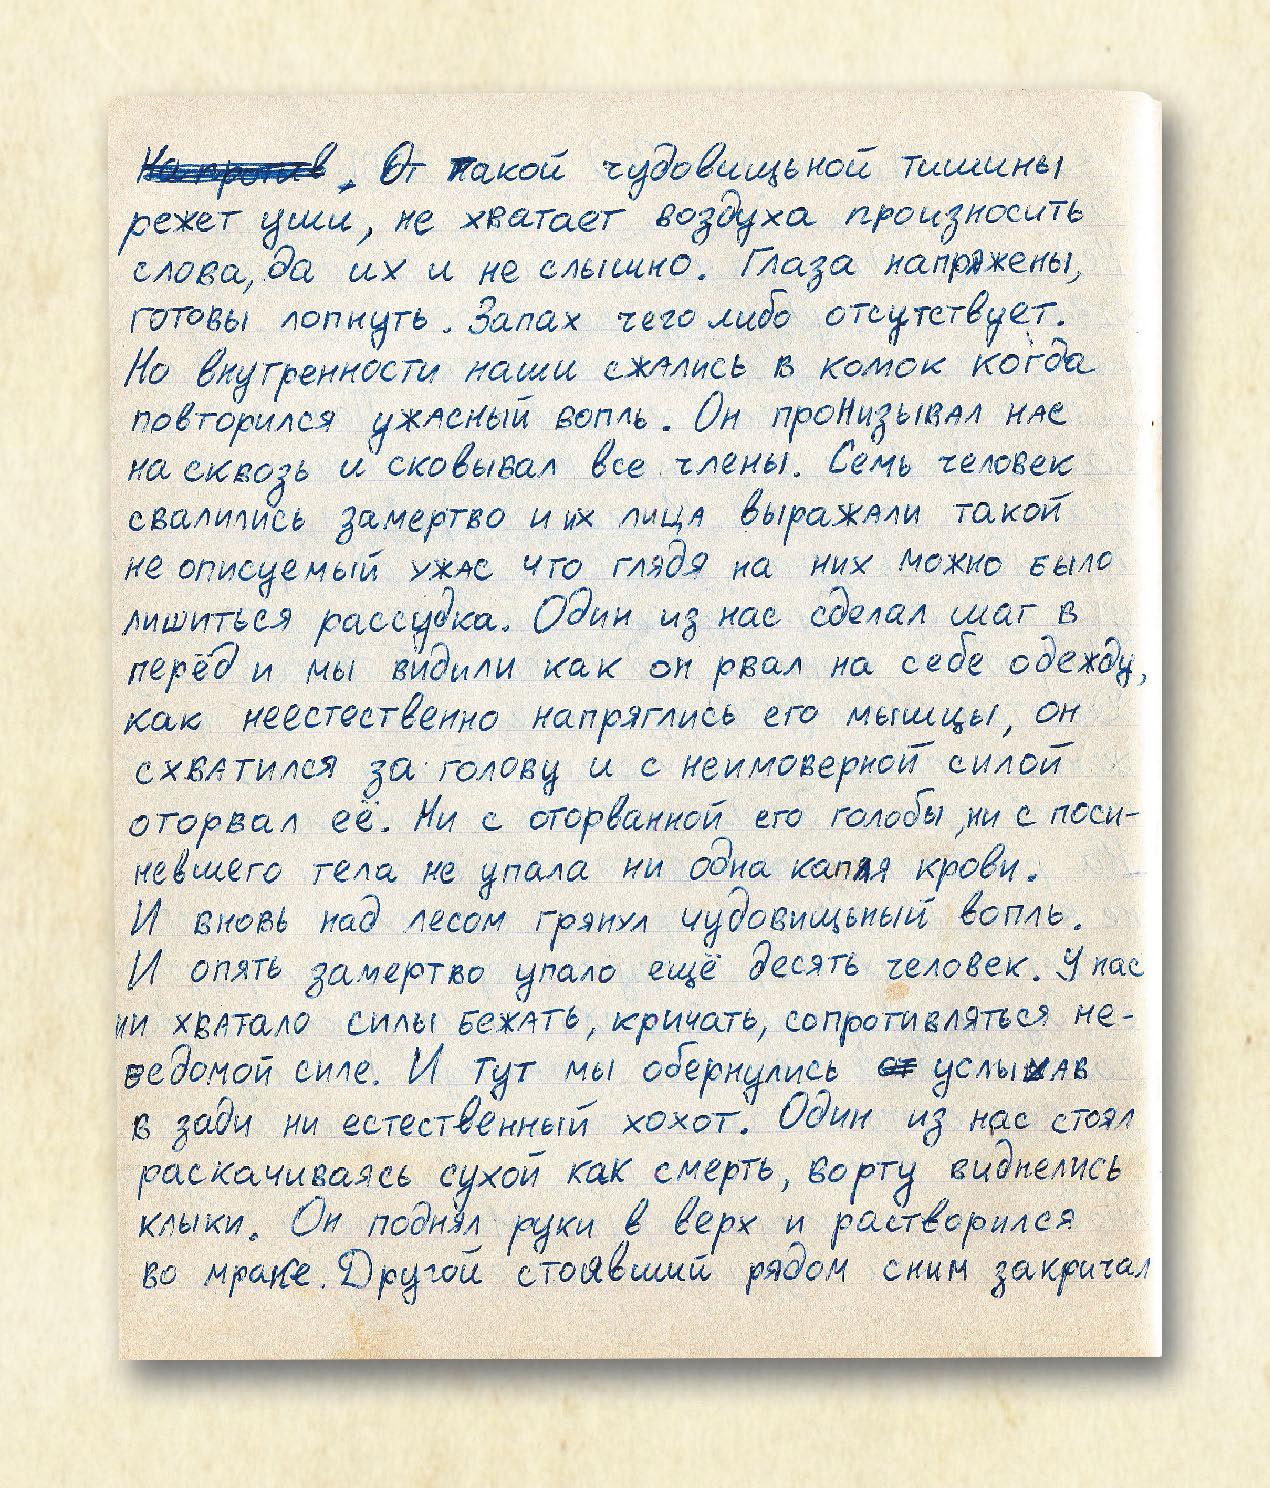 На против, От такой чудовищьной тишины
режет уши, не хватает воздуха произносить
слова, да их и не слышно. Глаза напряжены,
готовы лопнуть. Запах чего либо отсутствует.
Но внутренности наши сжались в комок когда
повторился ужасный вопль. Он пронизывал нас
на сквозь и сковывал все члены. Семь человек
свалились замертво и их лица выражали такой
не описуемый ужас что глядя на них можно было
лишиться рассудка. Один из нас сделал шаг в
перёд и мы видили как он рвал на себе одежду,
как неестественно напряглись его мышцы, он
схватился за голову и с неимоверной силой
оторвал её. Ни с оторванной его головы, ни с поси-
невшего тела не упала ни одна капля крови.
И вновь над лесом грянул чудовищьный вопль.
И опять замертво упало ещё десять человек. У нас
ни хватало силы бежать, кричать, сопротивляться не-
ведомой силе. И тут мы обернулись от услышав
в зади ни естественный хохот. Один из нас стоял
раскачиваясь сухой как смерть, во рту виднелись
клыки. Он поднял руки в верх и растворился
во мраке. Другой стоявший рядом сним закричал